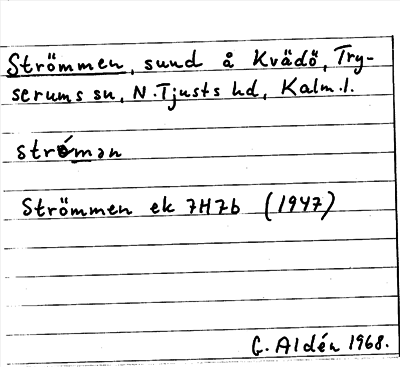 Strömmen, sund å Kvädö, Try-
serums sn, N. Tjusts hd, Kalm. l.
strömən
Strömmen ek 7H7b (1947)
G. Aldén 1968.